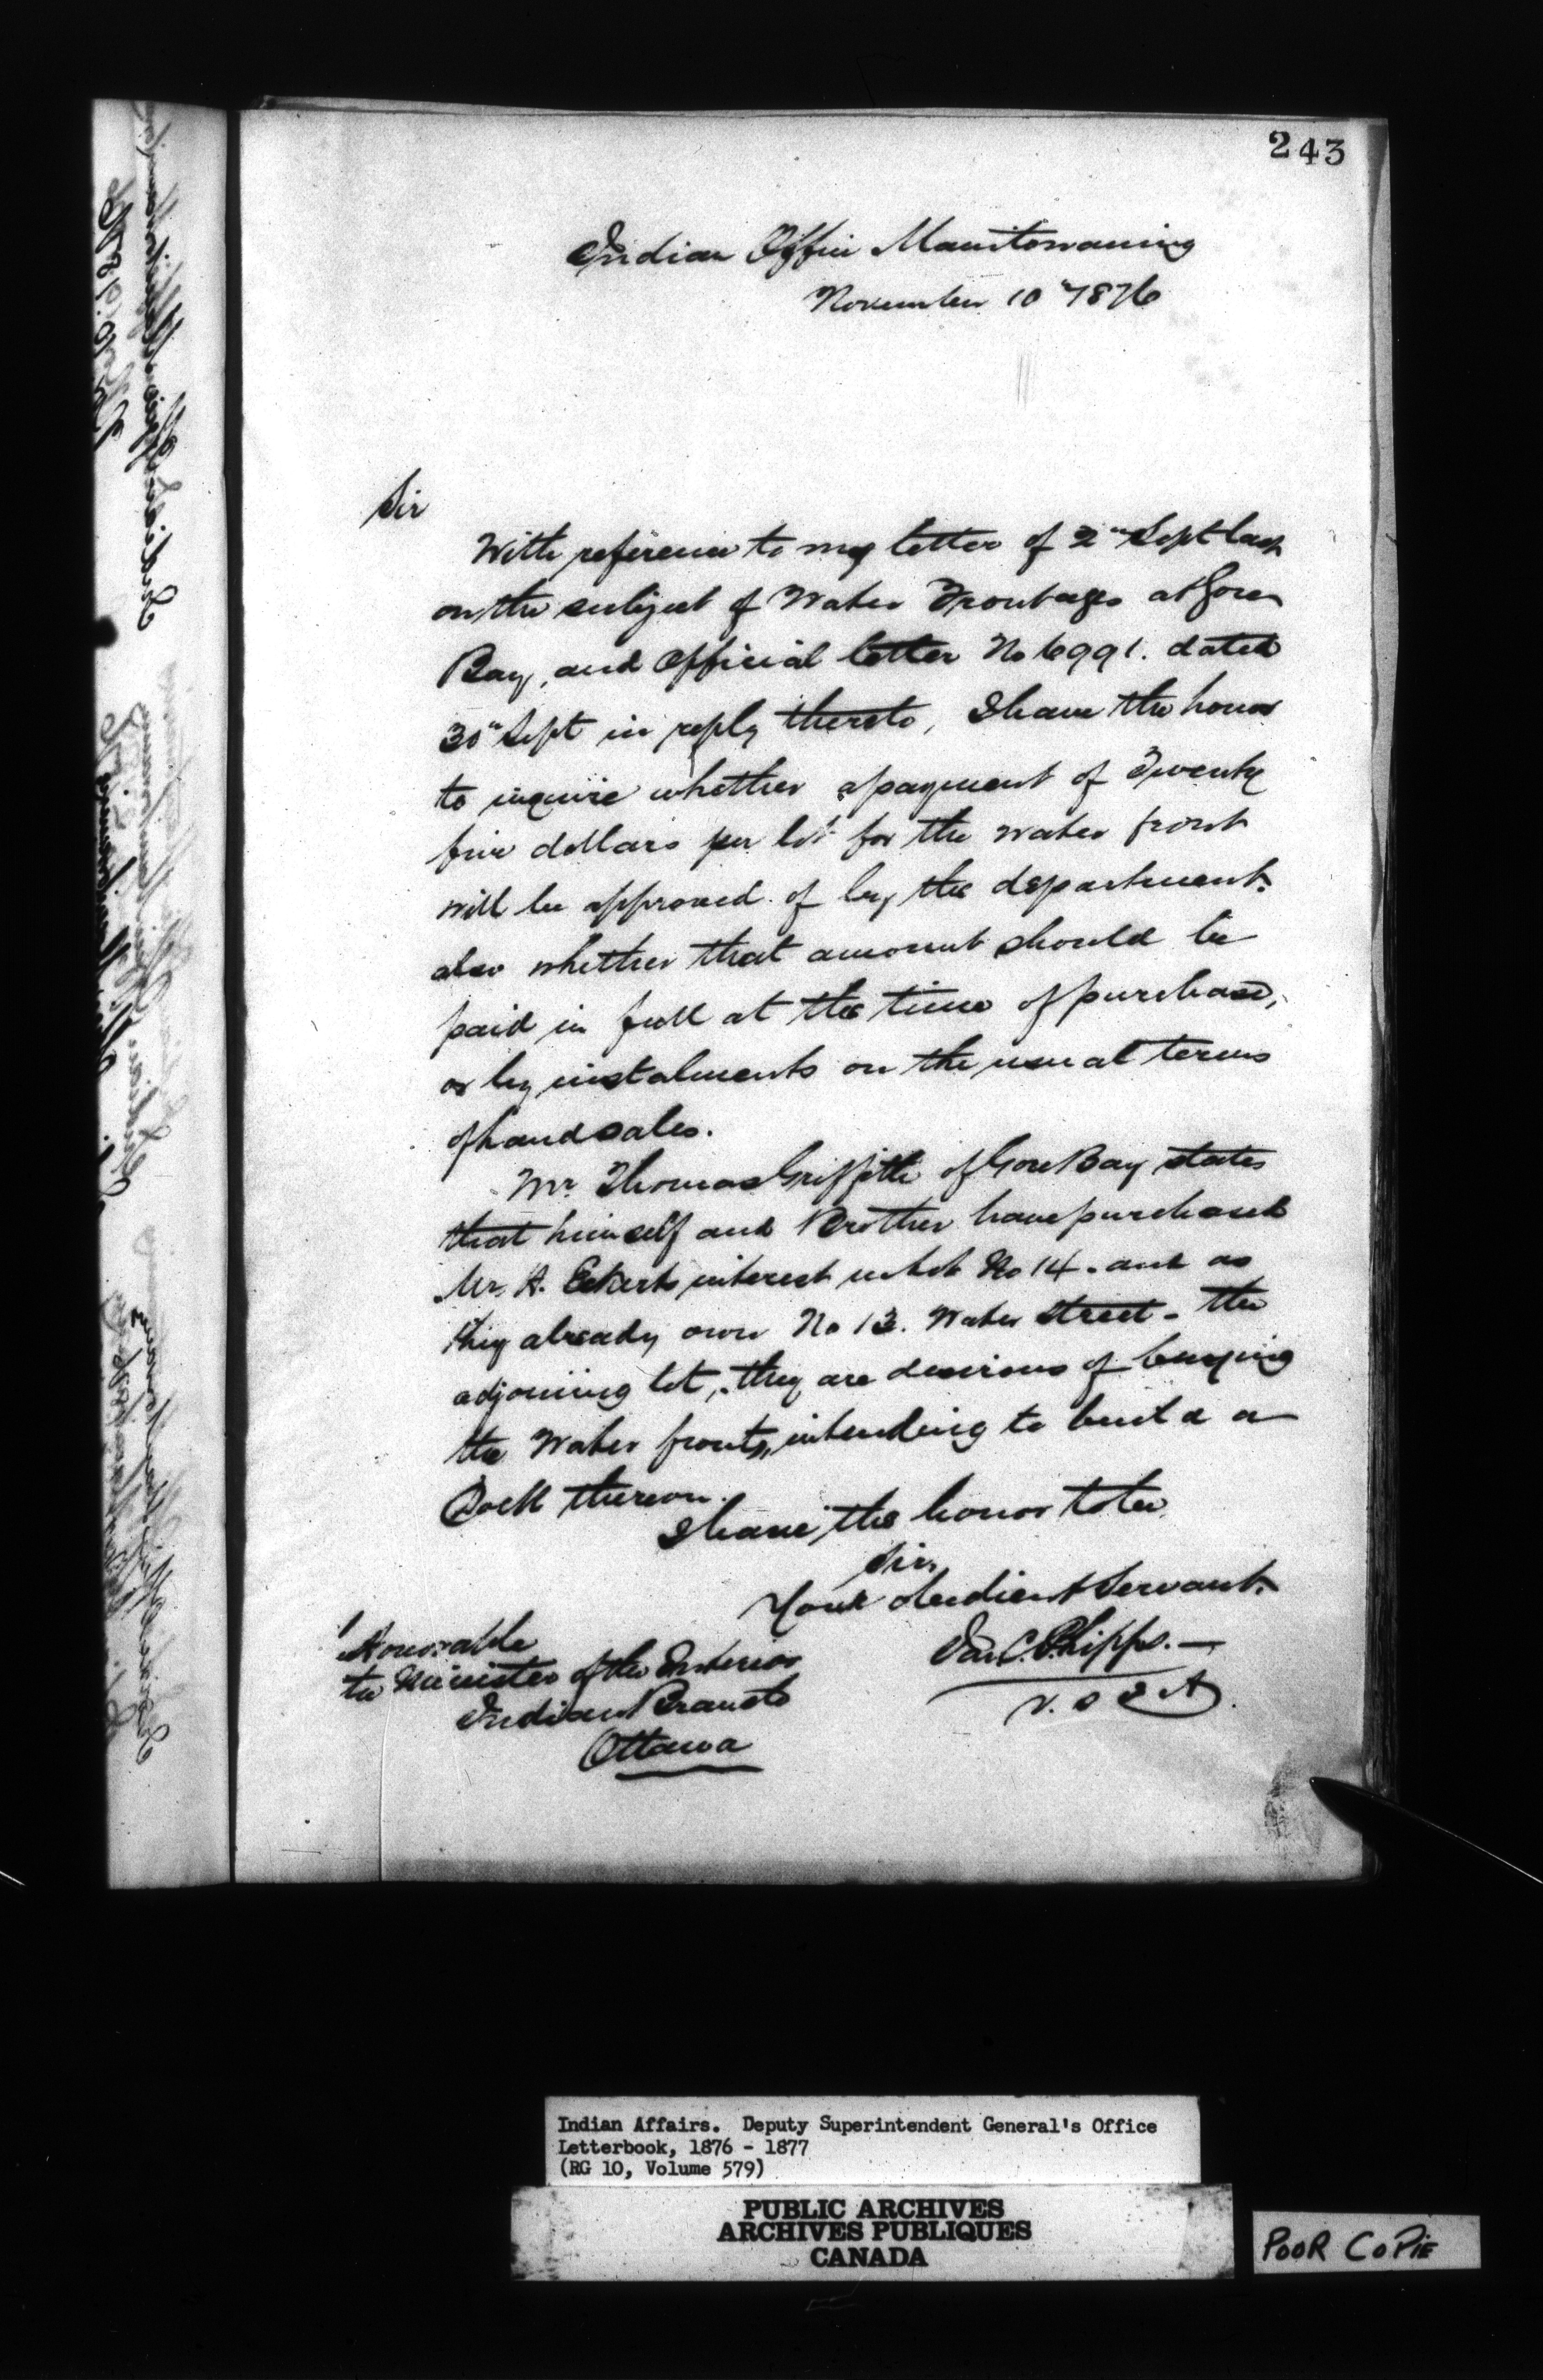 243
Indian Office Manitowaning
November 10th 1876
Sir
With reference to my letter of 2nd Sept last
on the subject of Water Frontages at Gore
Bay, and Official letter No 6991. dated
30th Sept in reply thereto, I have the honor
to inquire whether a payment of Twenty
five dollars per lot for the water front
will be approved of by the department.
also whether that amount should be
paid in full at the time of purchase,
or by instalments on the usual terms
of land sales.
Mr. Thomas Griffith of Gore Bay states
that himself and Brother have purchased
Mr. A. interest in lot No 14. and as
they already own No 13. Water Street - the
adjoining lot, they are desirous of buying
the Water fronts, intending to build a
Dock thereon.
I have the honor to be
Sir,
Your obedient Servant.
Jas. C. Phipps.
V. S. I. A.
Honorable
the Minister of the Interior
Indian Branch
Ottawa
Indian Affairs. Deputy Superintendent General's Office
Letterbook, 1876 - 1877
(RG 10, Volume 579)
PUBLIC ARCHIVES
ARCHIVES PUBLIQUES
CANADA
POOR COPIE